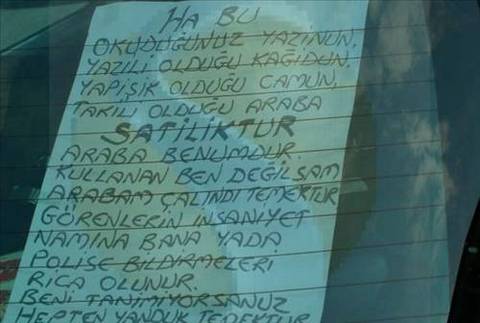 HA BU
OKUDUĞUNUZ YAZİNUN,
YAZILI OLDUĞU KAĞIDUN,
YAPIŞIK OLDUĞU CAMUN,
TAKILI OLDUĞU ARABA
SATILIKTUR
ARABA BENUMDUR.
KULLANAN BEN DEĞILSAM
ARABAM ÇALINDI TEMEKTUR
GÖRENLERİN İNSANİYET
NAMINA BANA YADA
POLİSE BİLDİRMELERİ
RİCA OLUNUR.
BENİ TANIMIYORSANUZ
HEPTEN YANDUK TEMEKTUR